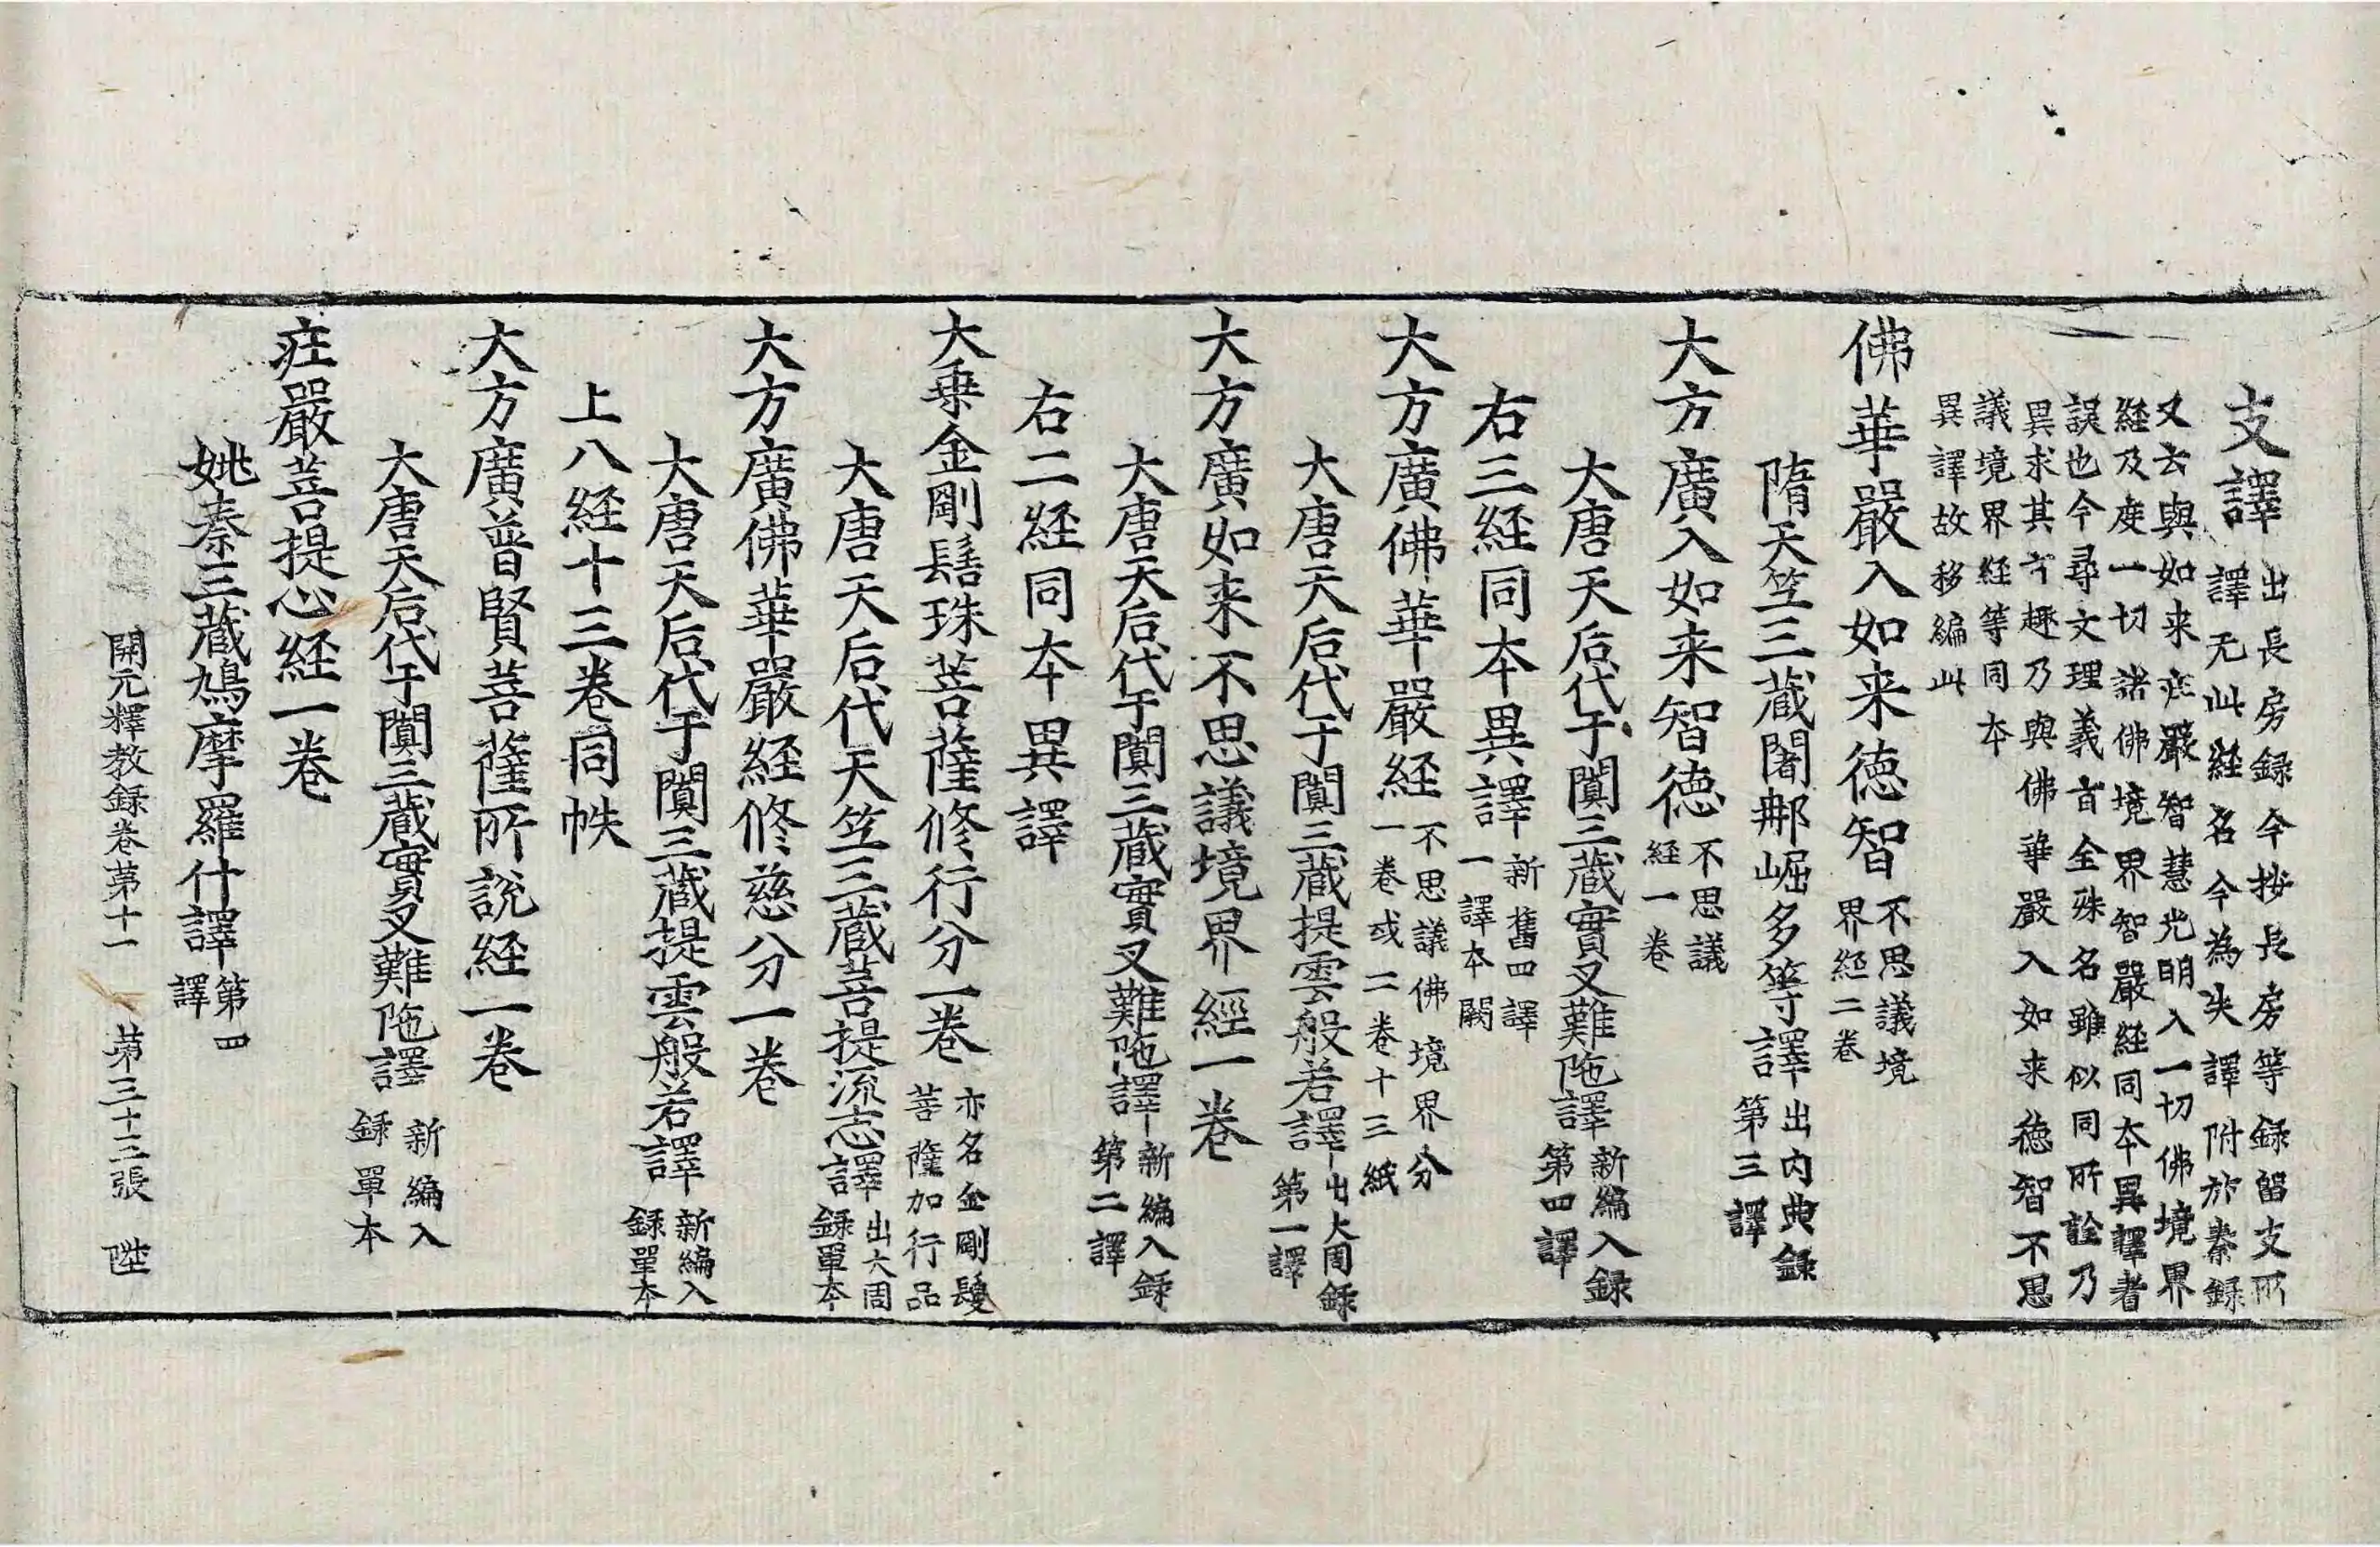 支譯出長房録今按長房等録留支所
譯无此経名今為失譯附於秦録
又云與如来庄嚴智慧光明入一切佛境界
経及度一切諸佛境界智嚴経同夲異譯者
誤也今尋文理義旨全殊名雖似同所詮乃
異求其𠅘趣乃與佛華嚴入如来徳智不思
議境界経等同夲
異譯故移編此
佛華嚴入如来徳智不思議境
界経二卷
隋天竺三藏闍那崛多等譯出内典録
第三譯
大方廣入如来智徳不思議
経一卷
大唐天后代于闐三藏實叉難陁譯新編入録
第四譯
右三経同夲異譯新舊四譯
一譯夲闕
大方廣佛華嚴経不思議佛境界分
一卷或二卷十三紙
大唐天后代于闐三藏提雲般若譯出大周録
第一譯
大方廣如来不思議境界經一卷
大唐天后代于闐三藏實叉難陁譯新編入録
第二譯
右二経同夲異譯
大乗金剛髻珠菩薩修行分一卷亦名金剛鬘
菩薩加行品
大唐天后代天竺三藏菩提流志譯出大周
録單夲
大方廣佛華嚴経修慈分一卷
大唐天后代于闐三藏提雲般若譯新編入
録單夲
上八経十三卷同帙
大方廣普賢菩薩所說経一卷
大唐天后代于闐三藏實叉難陁譯新編入
録單夲
庄嚴菩提心経一卷
姚秦三藏鳩摩羅什譯第四
譯
開元釋教録卷第十一 第三十三張 陞